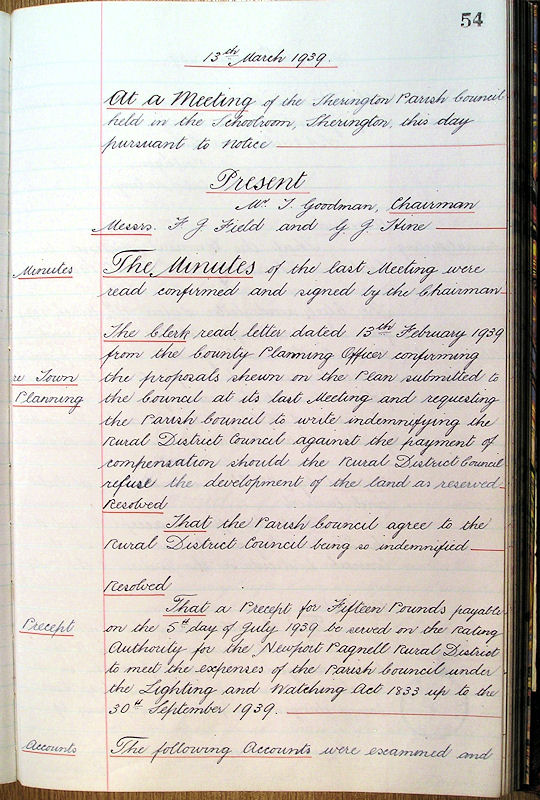 54
13th March 1939.
At a Meeting of the Sherington Parish Council
held in the Schoolroom, Sherington, this day
pursuant to notice
Present
Mr. T. Goodman, Chairman
Messrs. F G Field and G. G. Hine
Minutes
The Minutes of the last Meeting were
read confirmed and signed by the Chairman
The Clerk read letter dated 13th February 1939
from the County Planning Officer confirming
re Town
the proposals shewn on the Plan submitted to
Planning
the Council at its last Meeting and requesting
the Parish Council to write indemnifying the
Rural District Council against the payment of
compensation should the Rural District Council
refuse the development of the land as reserved
Resolved
That the Parish Council agree to the
Rural District Council being so indemnified
Resolved
That a Precept for Fifteen Pounds payable
Precept
on the 5th day of July 1939 be served on the Rating
Authority for the Newport Pagnell Rural District
to meet the expenses of the Parish Council under
the Lighting and Watching Act 1833 up to the
30th September 1939.
Accounts
The following Accounts were examined and